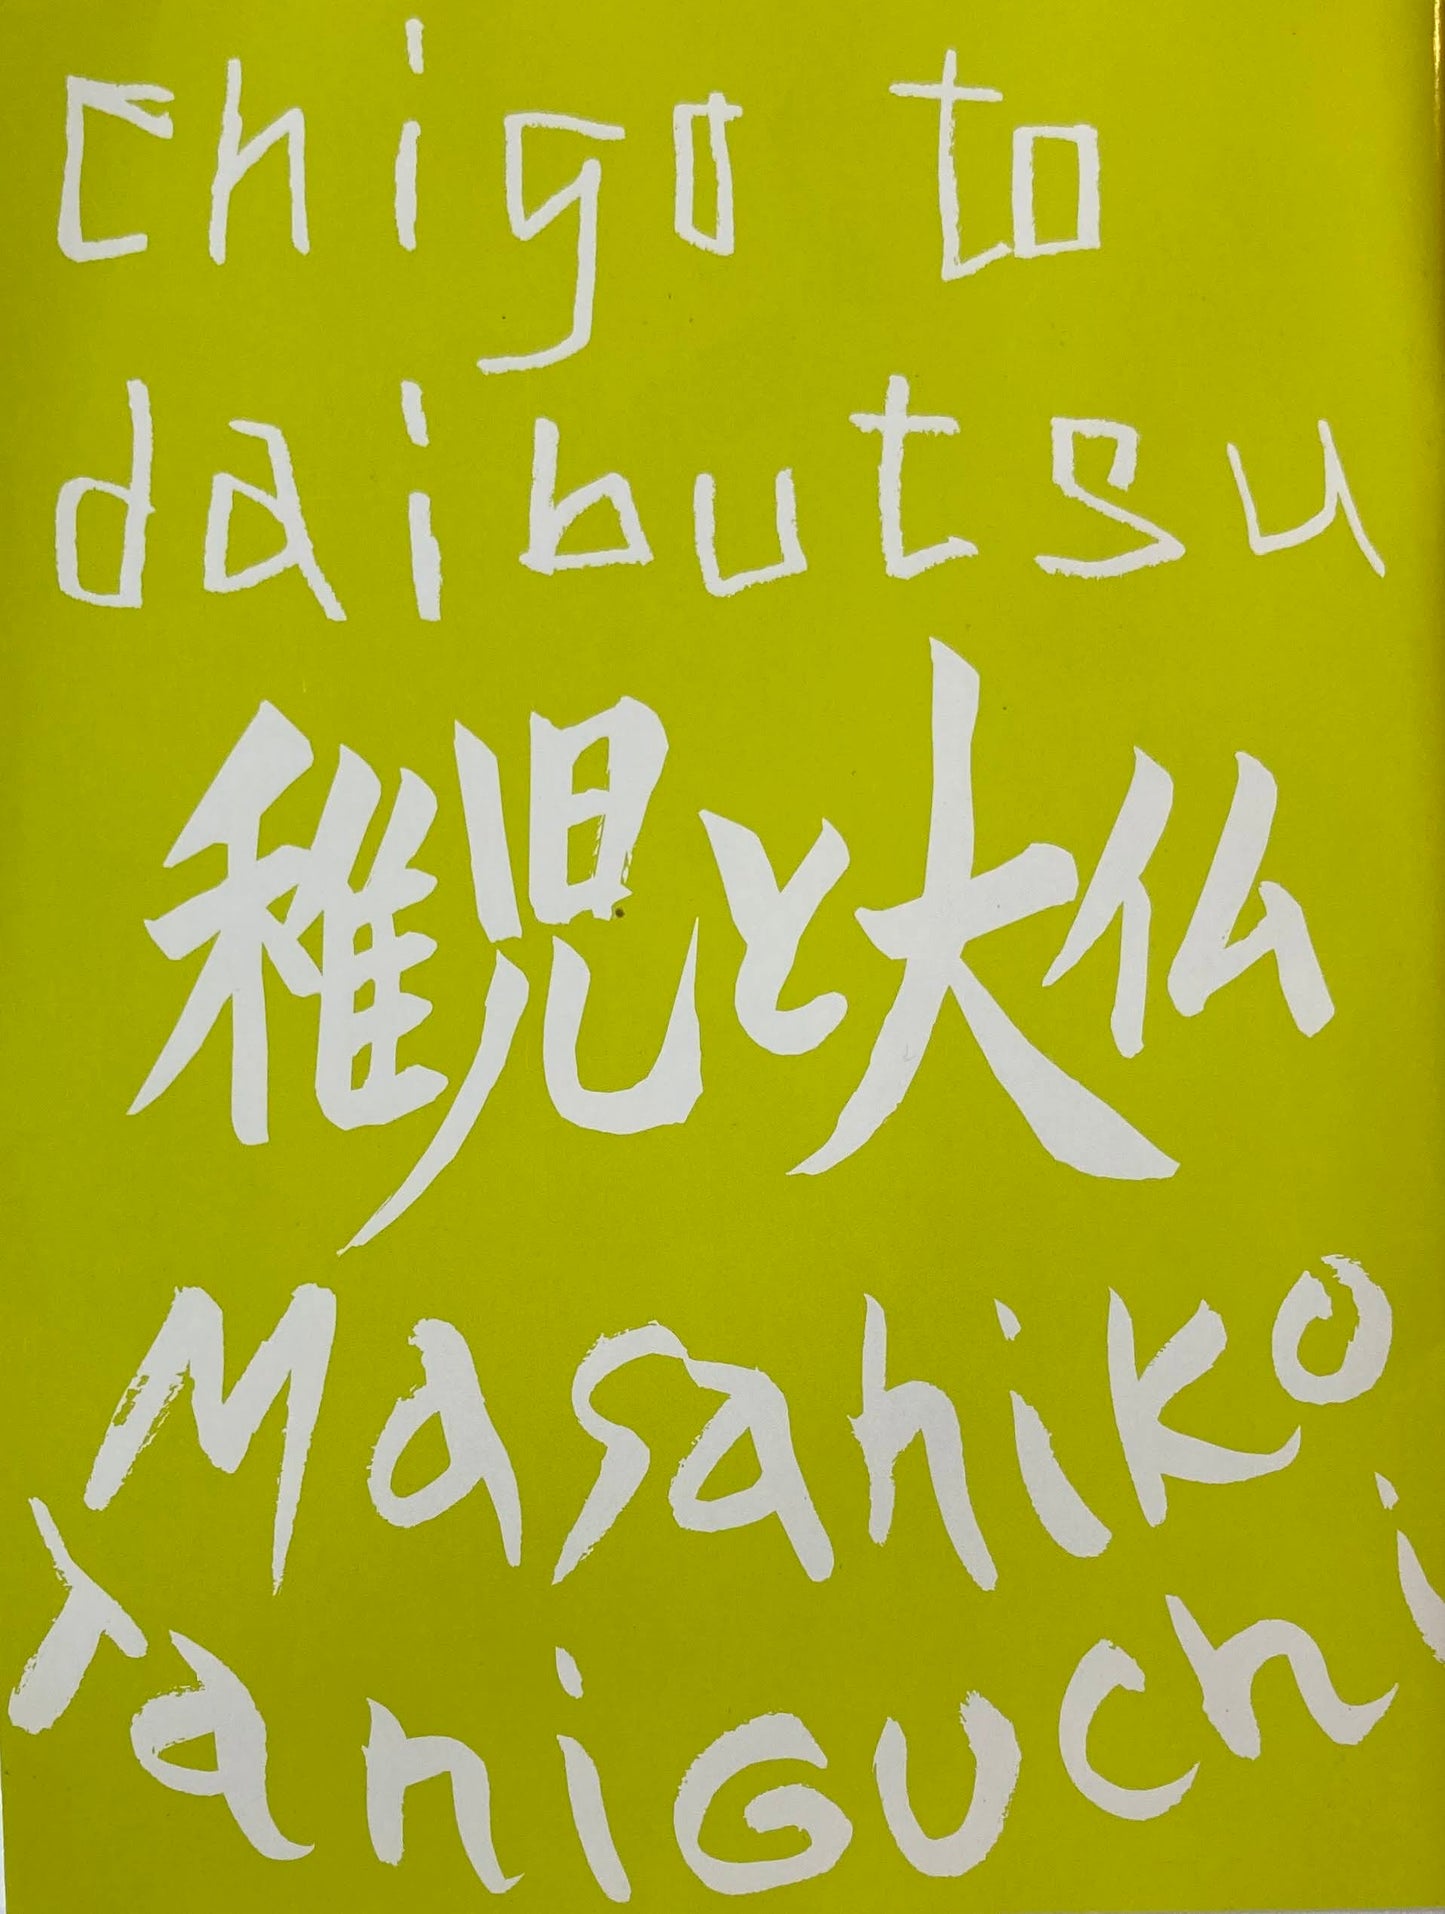 chigo to
daibutsu
稚児と大仏
Masahiko
Taniguchi